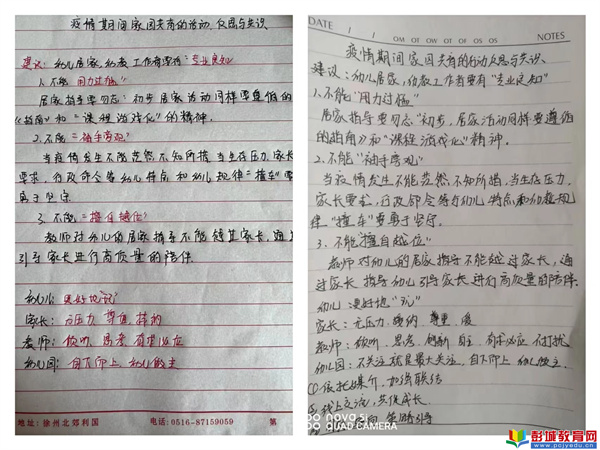 疫情期间家园共育的活动、反思与共识
建议：幼儿居家，幼教工作者要有"专业良知"
1.不能"用力过猛"
居家指导要勿忘：初步居家活动同样要遵循的
《指南》和"课程游戏化"的精神.
2.不能"袖手旁观"
当疫情发生不能茫然不知所措，当生存压力、家长
要求，行政命令等幼儿特点和幼儿规律"撞车"要
勇于坚守
3.不能"擅自越位"
教师对幼儿的居家指导不能
家长进行高质量的陪伴
幼儿：更好地玩
家长：无压力、尊重
教师：倾听、思考、有求必应
幼儿园：自下而上、幼儿做主
地址：徐州北郊利国 电话：0516-87159059 第
DATE / / NOTES
疫情期间家园共育的行动反思与共识.
建议：幼儿居家，幼教工作者要有"专业良知"
1.不能"用力过猛"
居家指导要勿忘"初步,居家活动同样要遵循
的指南》和"课程游戏化"精神.
2.不能"袖手旁观"
当疫情发生不能茫然,不知所措,当生存压力、
家长要求,行政部令等与幼儿特点和幼教规
律"撞车"要勇于坚守.
3.不能擅自越位"
教师对幼儿的居家指导不能越过家长,通
过家长指导幼儿引导家长进行高质量的陪伴.
幼儿:更好地"玩"
家长:无压力、接纳、尊重、爱
教师:倾听、思考、创新、自主、有求必应、不打扰
幼儿园:不关注就是最大关注、自下而上、幼儿做主.
①依托媒介,加强联结
线上交流,共促成长.
novo 5i
QUAD CAMERA
彭城教育网
www.pcjyedu.cn